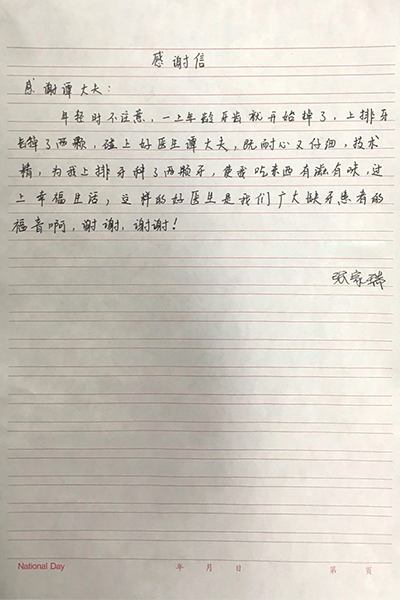 感谢信
感谢谭大夫:
年轻时不注意,一上年龄牙齿就开始掉了,上排牙
掉了两颗,碰上好医生谭大夫,既耐心又仔细,技术
精,为我上排牙种了两颗牙,使我吃东西有滋有味,过
上幸福生活,这样的好医生是我们广大缺牙患者的
福音啊,谢谢,谢谢!
张家瑞
National Day 年 月 日 第 页